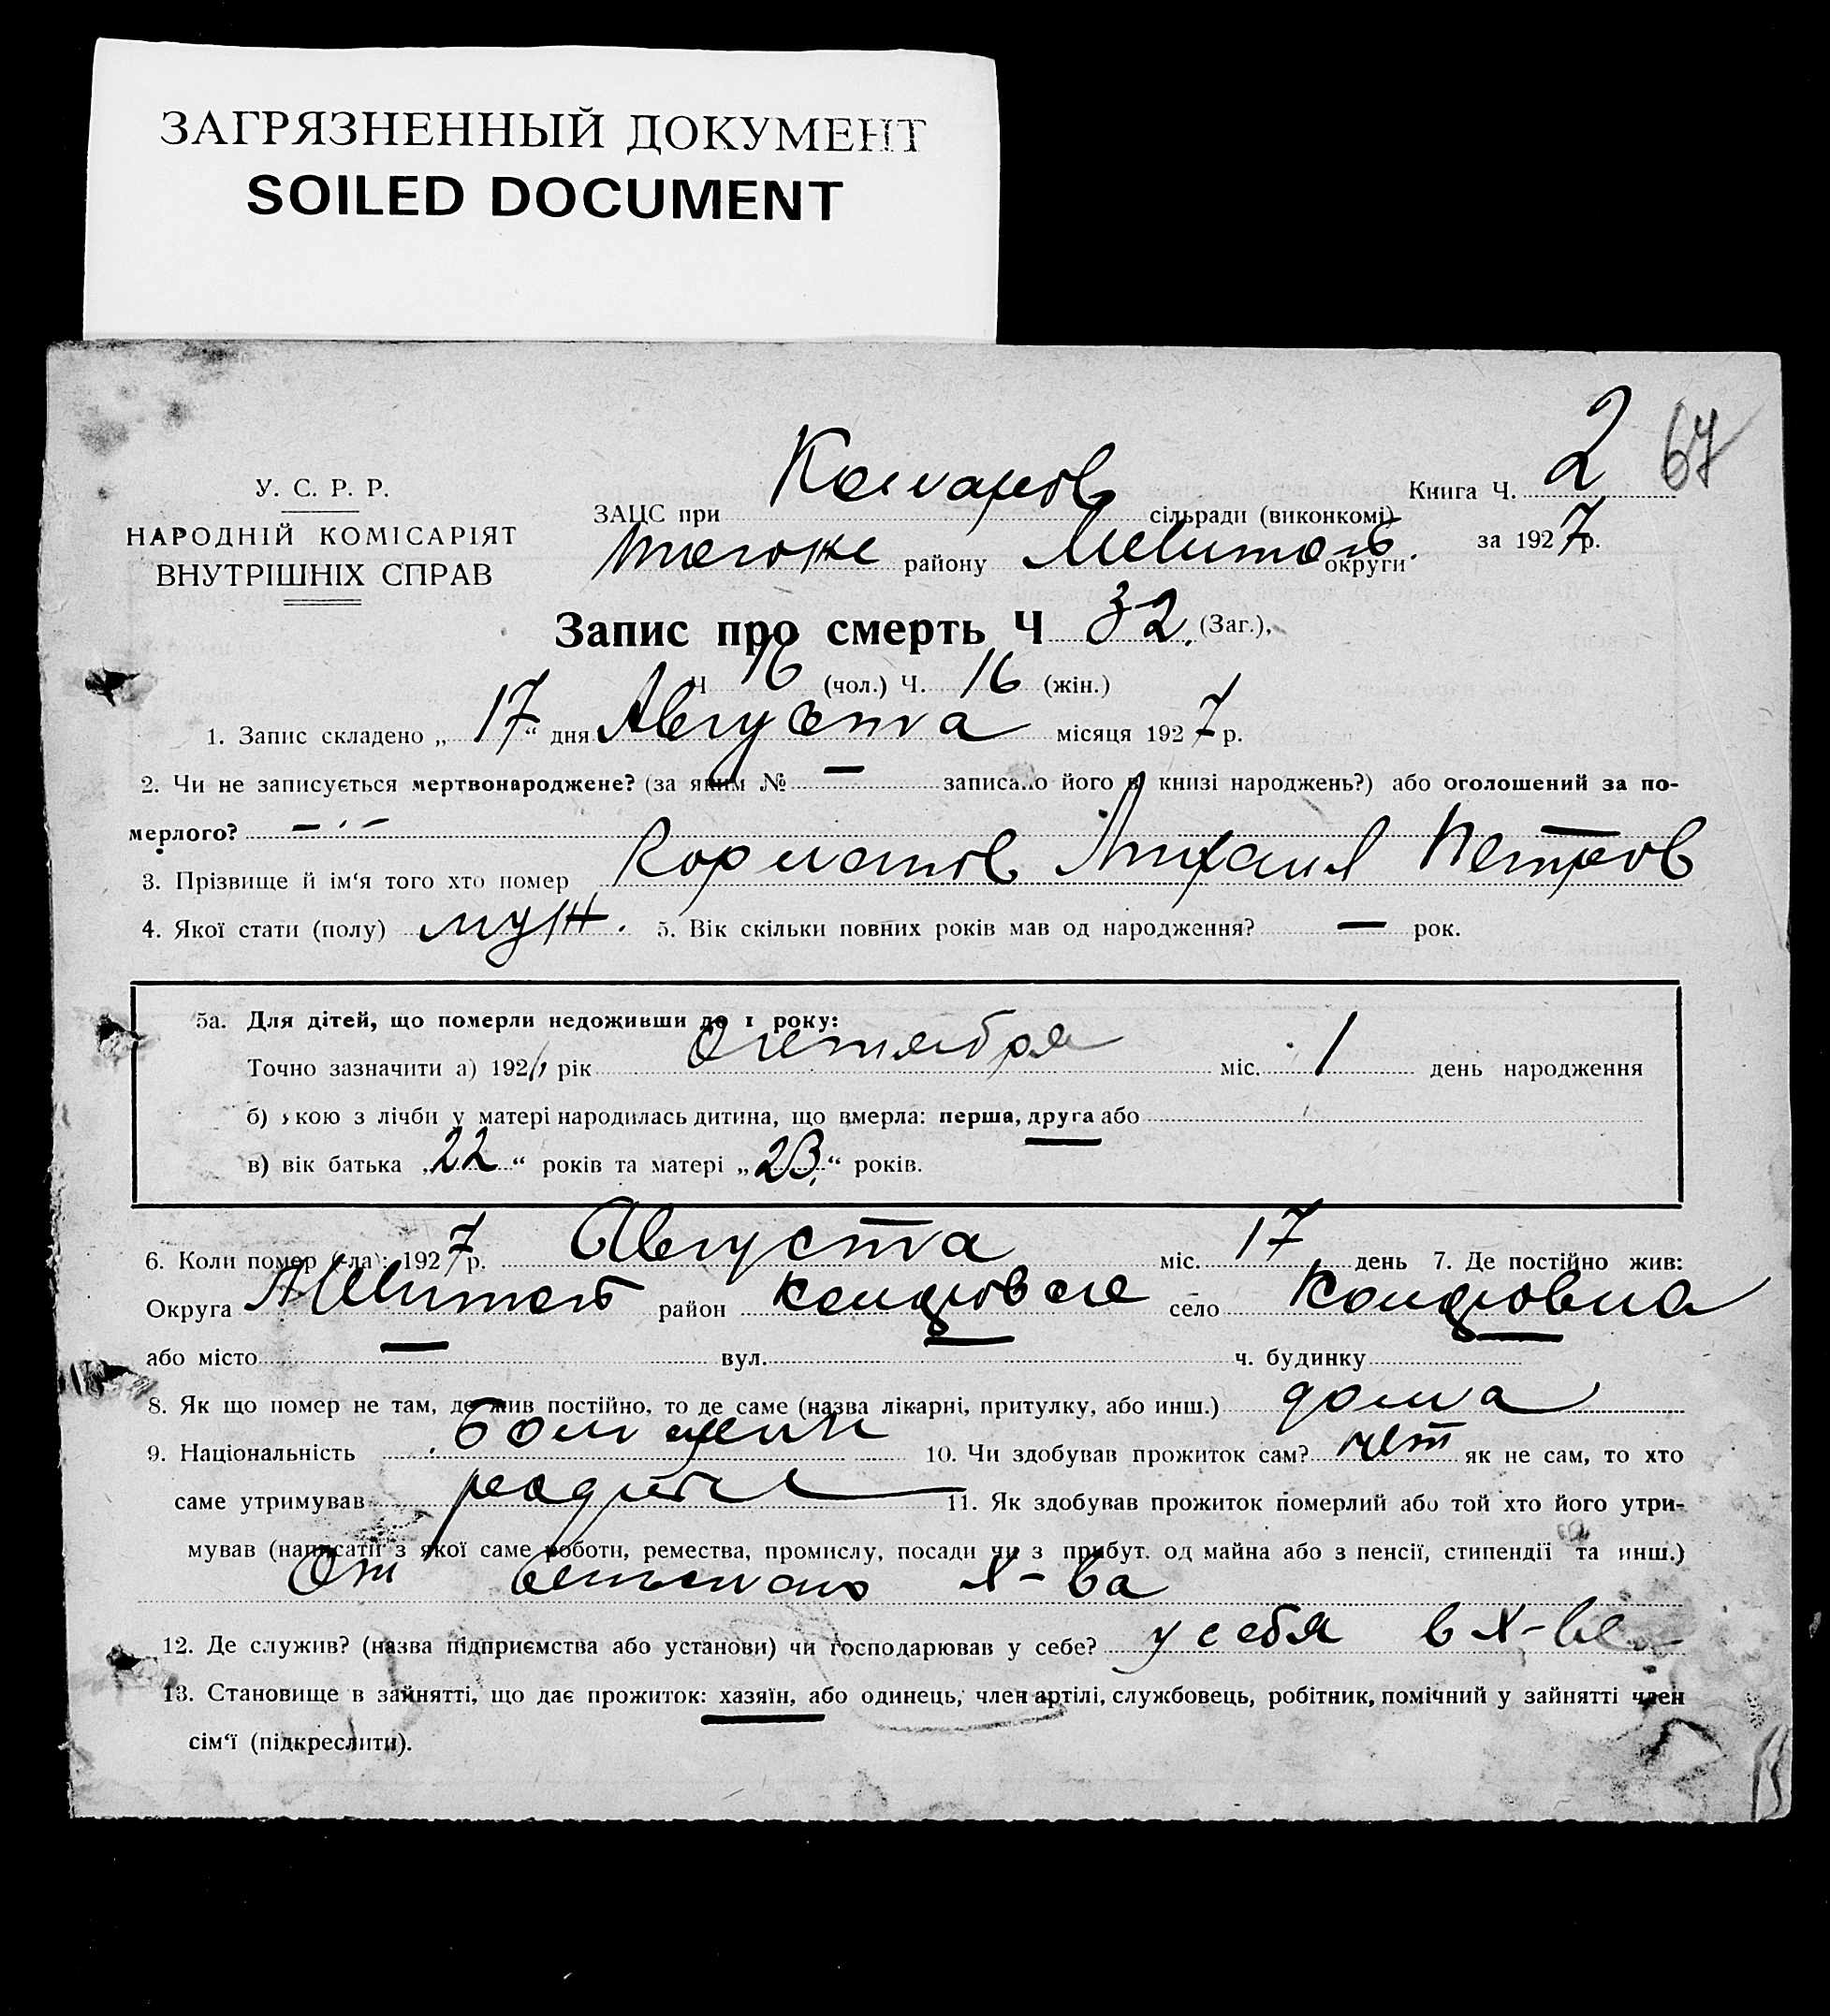 ЗАГРЯЗНЕННЫЙ ДОКУМЕНТ
SOILED DOCUMENT
2 67
У. С. Р. Р.
НАРОДНІЙ КОМІСАРІЯТ
ВНУТРІШНІХ СПРАВ
Книга Ч.
ЗАЦС при сільради (виконкомі)
тогоже району Мелитоп. округи
за 1927 р.
Запис про смерть Ч 32. (Заг.),
Ч 16 (чол.) Ч. 16 (жін.)
1. Запис складено „ 17 “ дня Августа місяця 1927 р.
2. Чи не записується мертвонароджене? (за яким № — записано його в книзі народжень?) або оголошений за по-
мерлого? — . —
3. Прізвище й ім‘я того хто помер Михаил Петров
4. Якої стати (полу) муж. 5. Вік скільки повних років мав од народження? — рок.
5а. Для дітей, що померли недоживши до 1 року:
Точно зазначити а) 192 рік Октября міс. 1 день народження
б) якою з лічби у матері народилась дитина, що вмерла: перша, друга або
в) вік батька „ 22 “ років та матері „ 23. “ років.
6. Коли помер (-ла): 1927 р. Августа міс. 17 день 7. Де постійно жив:
Округа Мелитоп район село
або місто — вул. — ч. будинку —
8. Як що помер не там, де жив постійно, то де саме (назва лікарні, притулку, або инш.) дома
9. Національність 10. Чи здобував прожиток сам? нет як не сам, то хто
саме утримував родители 11. Як здобував прожиток померлий або той хто його утри-
мував (написати з якої саме роботи, ремества, промислу, посади чи з прибут. од майна або з пенсії, стипендії та инш.)
От сельского х-ва
12. Де служив? (назва підприємства або установи) чи господарював у себе? у себя в х-ве
13. Становище в зайнятті, що дає прожиток: хазяїн, або одинець, член артілі, службовець, робітник, помічний у зайнятті член
сім‘ї (підкреслити).